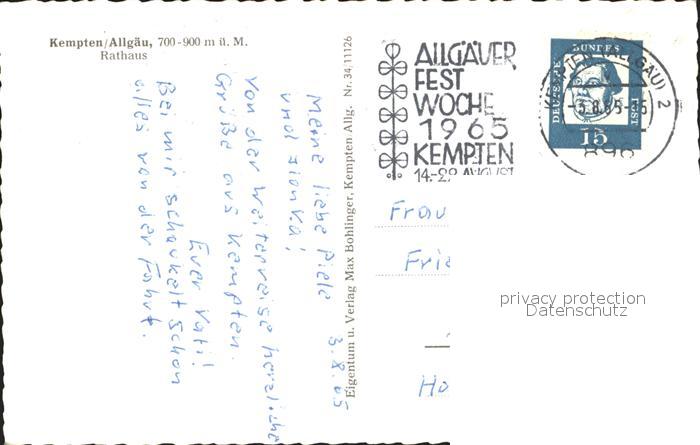 Kempten/Allgäu, 700-900 m ü. M.
Rathaus
3.8.65
Meine liebe Piele
und Zionka!
Von der Weiterreise herzliche
Grüße aus Kempten.
Euer Vati!
Bei mir schaukelt schon
alles von der Fahrt.
Eigentum u. Verlag Max Bohlinger, Kempten Allg. Nr. 34/11126
ALLGÄUER
FEST
WOCHE
1965
KEMPTEN
14.-22. AUGUST
DEUTSCHE BUNDES POST
15
KEMPTEN (ALLGÄU) 2
-3.8.65-15
896
Frau
Frie
Ho
privacy protection
Datenschutz